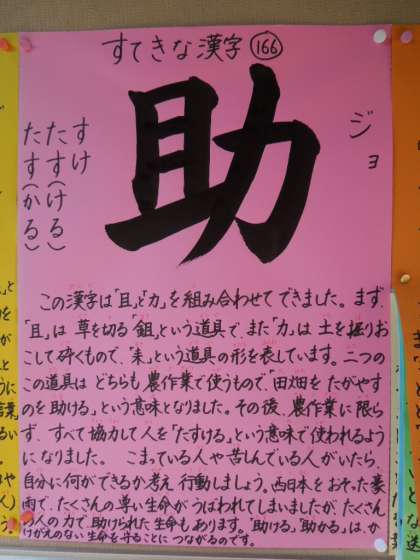 すてきな漢字 166
助
ジョ
すけ
たす(ける)
たす(かる)
この漢字は「且」と「力」を組み合わせてできました。まず、
「且」は草を切る「鉏」という道具で、また「力」は土を掘りお
こして砕くもので、「耒」という道具の形を表しています。二つの
この道具はどちらも農作業で使うもので、「田畑をたがやす
のを助ける」という意味となりました。その後、農作業に限ら
ず、すべて協力して人を「たすける」という意味で使われるよう
になりました。こまっている人や苦しんでいる人がいたら、
自分に何ができるか考え行動しましょう。西日本をおそった豪
雨で、たくさんの尊い生命がうばわれてしまいましたが、たくさん
の人の力で、助けられた生命もあります。「助ける」「助かる」は、か
けがえのない生命を守ることにつながるのです。